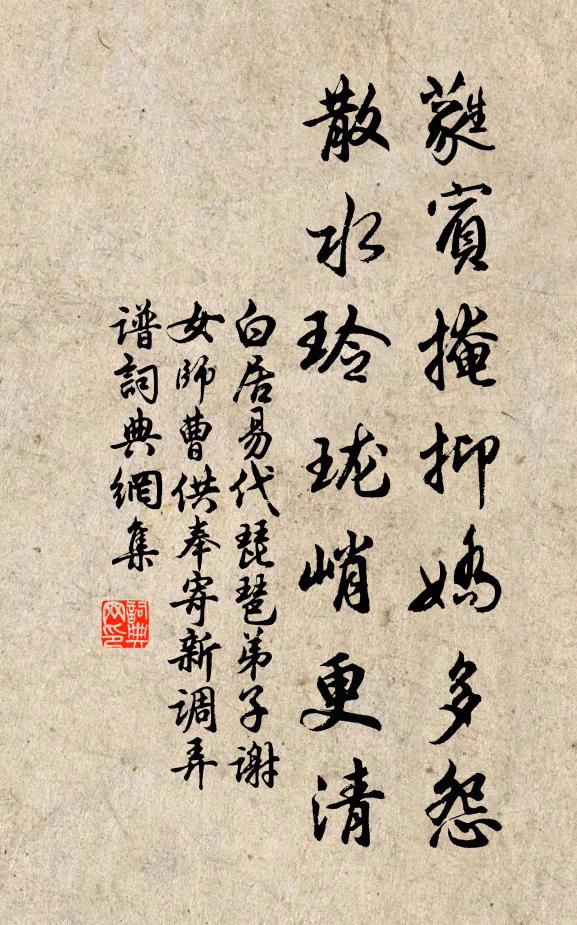 蕤賓掩抑嬌多怨
散水玲珑峭更清
白居易代琵琶弟子谢
女師曹供奉寄新调弄
谱詞典網集
詞典
网印